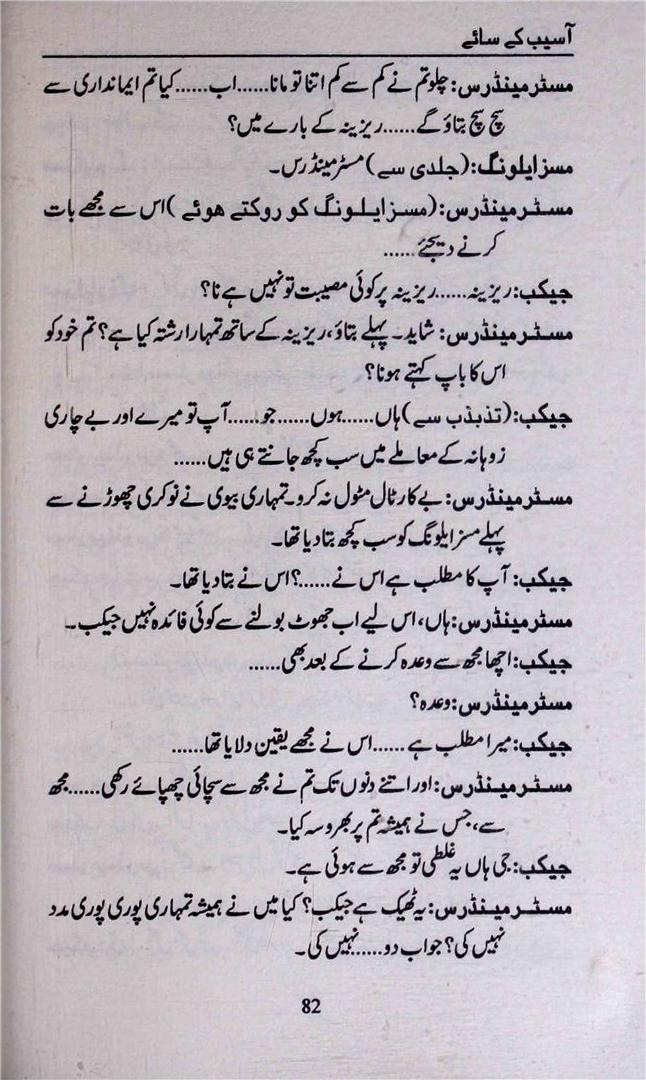 آسیب کے سائے
مسٹر مینڈرس: چلو تم نے کم سے کم اتنا تو مانا......اب......کیا تم ایمانداری سے
سچ سچ بتاؤ گے......ریزینہ کے بارے میں؟
مسز ایلونگ: (جلدی سے) مسٹر مینڈرس۔
مسٹر مینڈرس: (مسز ایلونگ کو روکتے ہوئے) اس سے مجھے بات
کرنے دیجئے......
جیکب: ریزینہ......ریزینہ پر کوئی مصیبت تو نہیں ہے نا؟
مسٹر مینڈرس: شاید۔ پہلے بتاؤ، ریزینہ کے ساتھ تمہارا رشتہ کیا ہے؟ تم خود کو
اس کا باپ کہتے ہو نا؟
جیکب: (تذبذب سے) ہاں......ہوں......جو......آپ تو میرے اور بے چاری
زوہانہ کے معاملے میں سب کچھ جانتے ہی ہیں......
مسٹر مینڈرس: بے کار ٹال مٹول نہ کرو۔ تمہاری بیوی نے نوکری چھوڑنے سے
پہلے مسز ایلونگ کو سب کچھ بتا دیا تھا۔
جیکب: آپ کا مطلب ہے اس نے......؟ اس نے بتا دیا تھا۔
مسٹر مینڈرس: ہاں، اس لیے اب جھوٹ بولنے سے کوئی فائدہ نہیں جیکب۔
جیکب: اچھا مجھ سے وعدہ کرنے کے بعد بھی......
مسٹر مینڈرس: وعدہ؟
جیکب: میرا مطلب ہے......اس نے مجھے یقین دلایا تھا......
مسٹر مینڈرس: اور اتنے دنوں تک تم نے مجھ سے سچائی چھپائے رکھی......مجھ
سے، جس نے ہمیشہ تم پر بھروسہ کیا۔
جیکب: جی ہاں یہ غلطی تو مجھ سے ہوئی ہے۔
مسٹر مینڈرس: یہ ٹھیک ہے جیکب؟ کیا میں نے ہمیشہ تمہاری پوری پوری مدد
نہیں کی؟ جواب دو......نہیں کی۔
82